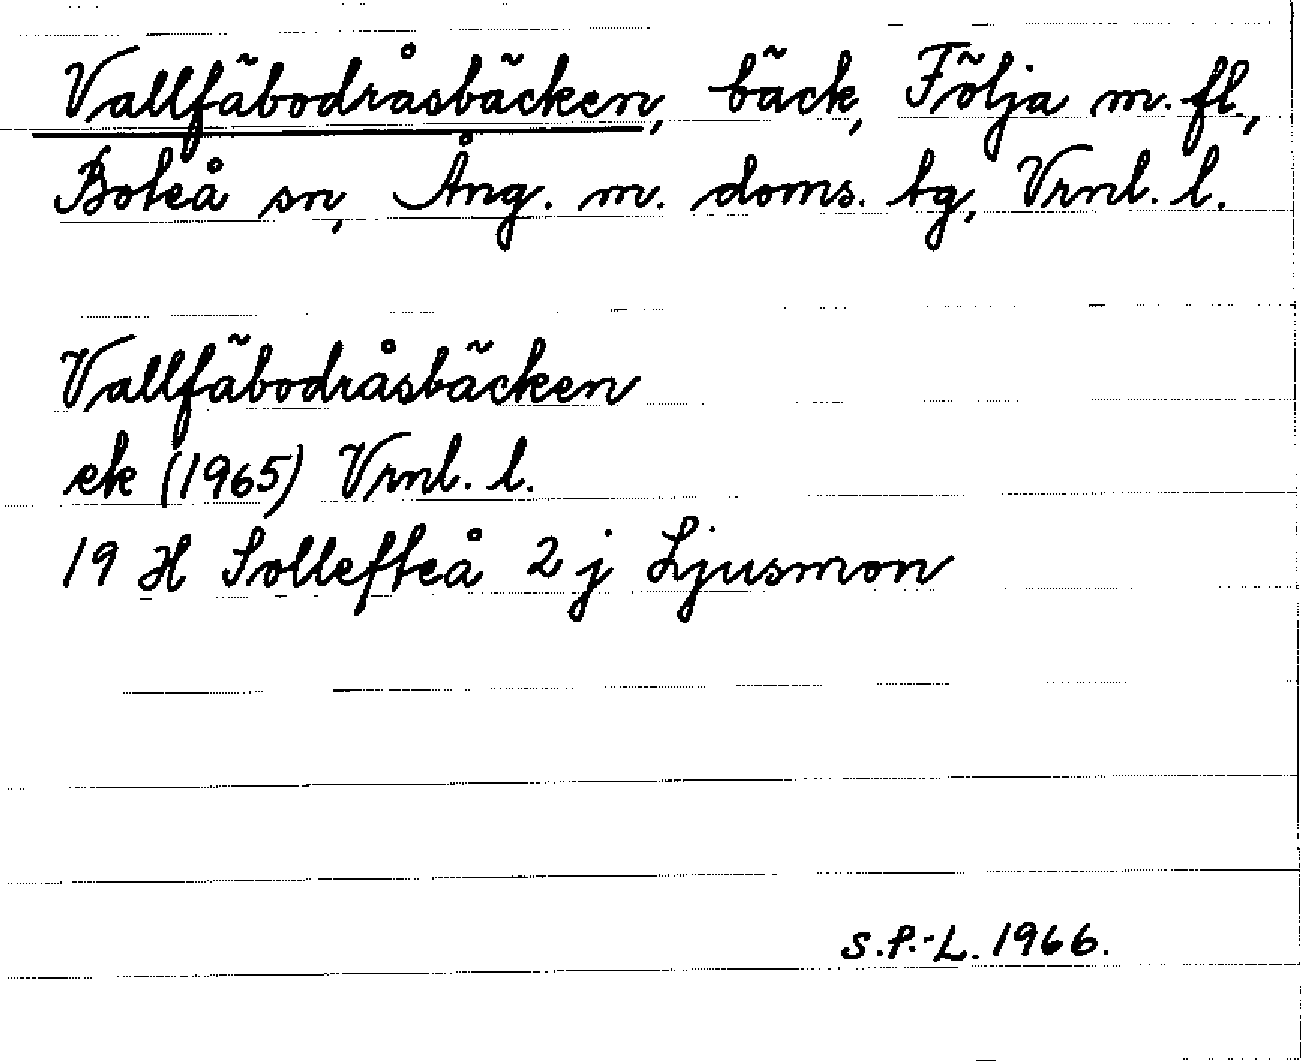 Vallfäbodråsbäcken, bäck, Följa m. fl.,
Boteå sn, Ång. m. doms. tg, Vrnl. l.
Vallfäbodråsbäcken
ek (1965) Vrnl. l.
19 H Sollefteå 2 j Ljusmon
S.P.-L. 1966.